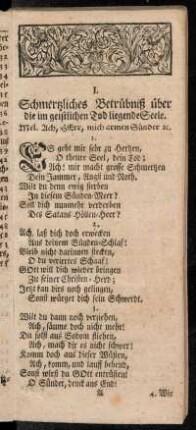 I.
Schmertzliches Betrübniß über
die im geistlichen Tod liegende Seele.
Mel. Ach, HErr, mich armen Sünder ꝛc.
1.
ES geht mir sehr zu Hertzen,
O theure Seel, dein Tod;
Ach! mir macht grosse Schmertzen
Dein Jammer, Angst und Noth.
Wilt du denn ewig sterben
In diesem Sünden-Meer?
Soll dich nunmehr verderben
Des Satans Höllen-Heer?
2.
Ach, laß dich doch erwecken
Aus deinem Sünden-Schlaf!
Bleib nicht darinnen stecken,
O du verirrtes Schaaf!
GOtt will dich wieder bringen
Zu seiner Christen-Herd;
Jetzt kan dirs noch gelingen,
Sonst würget dich sein Schwerdt.
3.
Wilt du dann noch verziehen,
Ach, säume doch nicht mehr!
Du solt aus Sodom fliehen,
Ach, mach dir es nicht schwer!
Komm doch aus dieser Wüsten,
Ach, komm, und lauff behend,
Sonst wirst du GOtt entrüsten!
O Sünder, denck ans End!
A 4. Wie